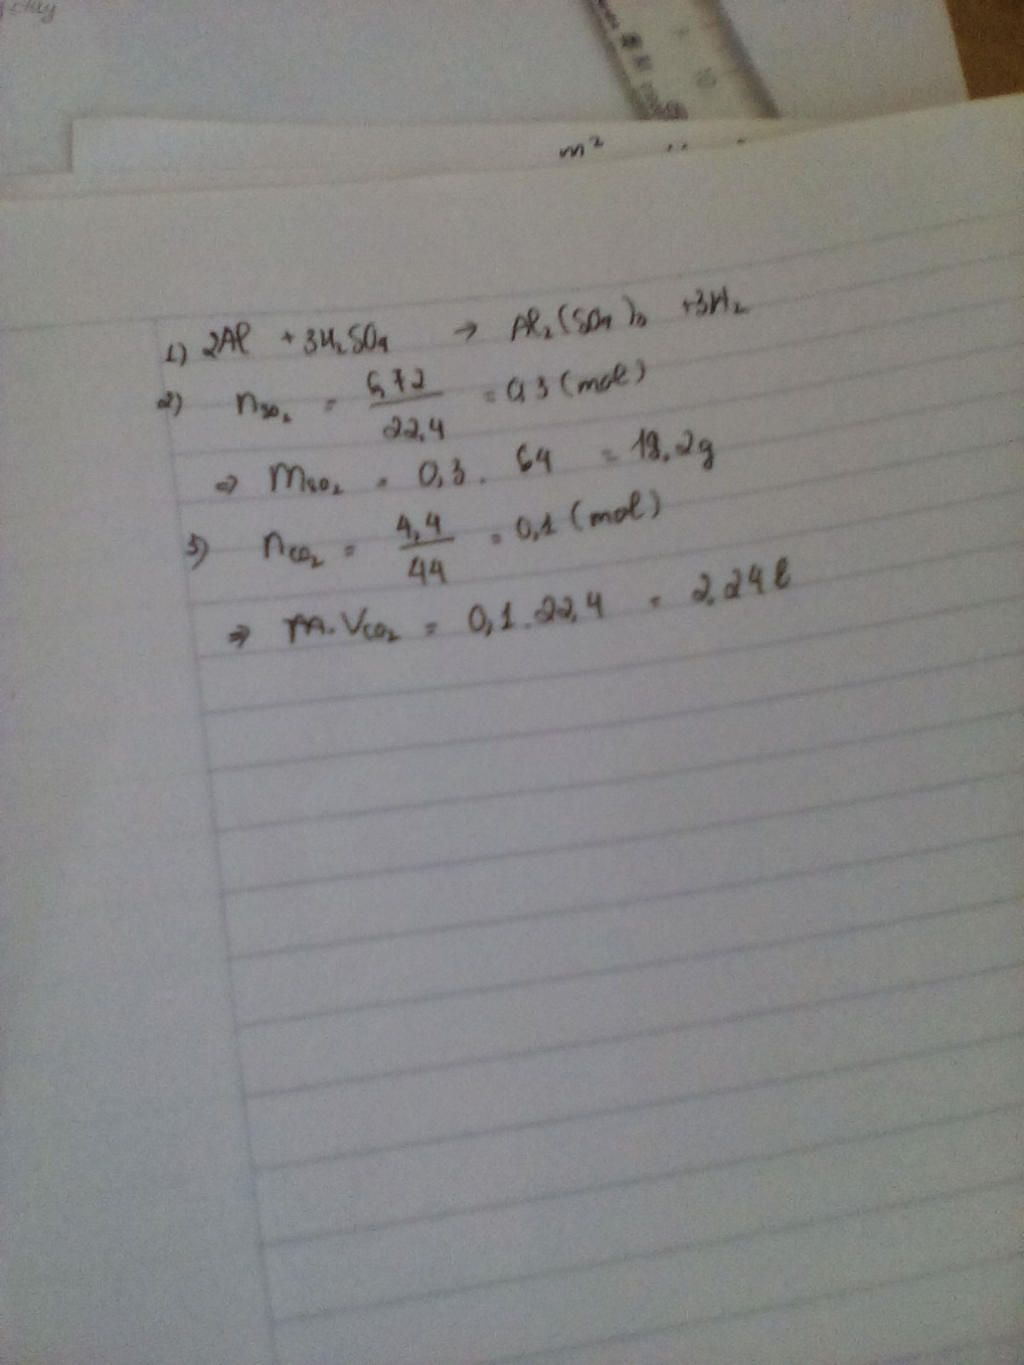 m²
1) 2Al + 3H₂SO₄ → Al₂(SO₄)₃ + 3H₂
2) nSO₂ = 6,72 / 22,4 = 0,3 (mol)
⇒ mSO₂ = 0,3 . 64 = 19,2g
3) nCO₂ = 4,4 / 44 = 0,1 (mol)
⇒ m.VCO₂ = 0,1 . 22,4 = 2,24l